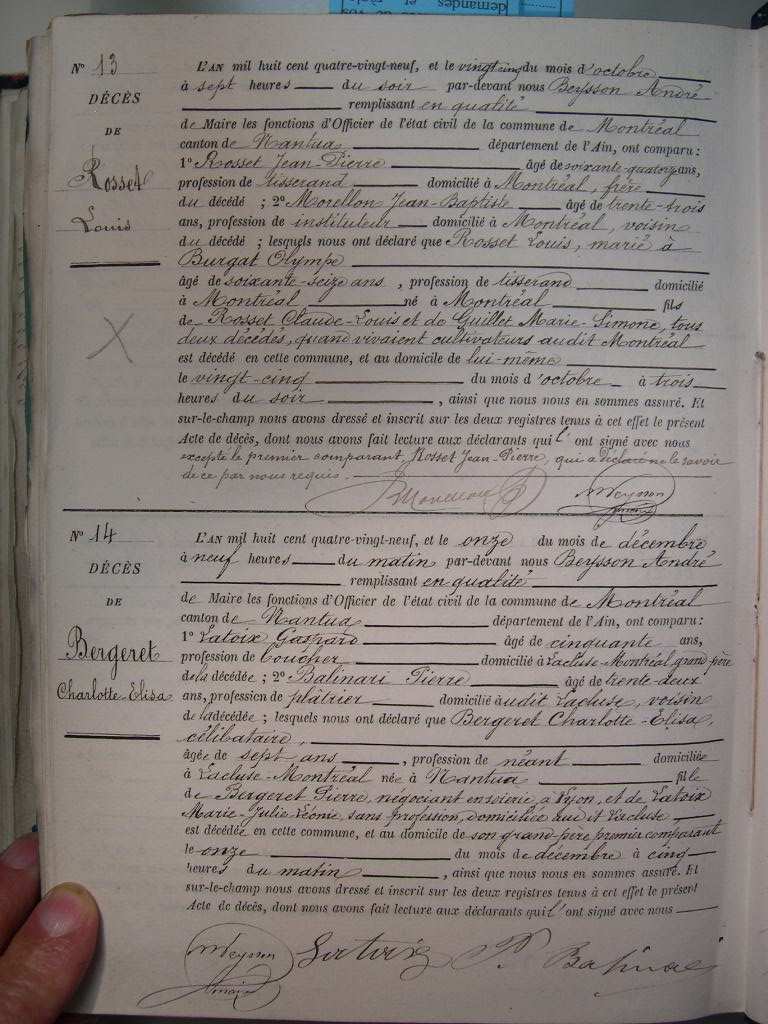 demandes
Nº 13
DÉCÈS
DE
Rosset
Louis
L'AN mil huit cent quatre-vingt-neuf, et le vingt cinq du mois d'octobre
à sept heures du soir par-devant nous Beysson André
remplissant en qualité
de Maire les fonctions d'Officier de l'état civil de la commune de Montréal
canton de Nantua département de l'Ain, ont comparu :
1º Rosset Jean-Pierre âgé de soixante-quatorze ans,
profession de tisserand domicilié à Montréal, frère
du décédé ; 2º Morellon Jean-Baptiste âgé de trente-trois
ans, profession de instituteur domicilié à Montréal, voisin
du décédé ; lesquels nous ont déclaré que Rosset Louis, marié à
Burgat Olympe
âgé de soixante-seize ans, profession de tisserand domicilié
à Montréal né à Montréal fils
de Rosset Claude-Louis et de Guillet Marie-Simone, tous
deux décédés, quand vivaient cultivateurs audit Montréal
est décédé en cette commune, et au domicile de lui-même
le vingt-cinq du mois d'octobre à trois
heures du soir, ainsi que nous nous en sommes assuré. Et
sur-le-champ nous avons dressé et inscrit sur les deux registres tenus à cet effet le présent
Acte de décès, dont nous avons fait lecture aux déclarants qui l'ont signé avec nous
excepté le premier comparant, Rosset Jean-Pierre, qui a déclaré ne le savoir
de ce par nous requis.
Nº 14
DÉCÈS
DE
Bergeret
Charlotte-Elisa
L'AN mil huit cent quatre-vingt-neuf, et le onze du mois de décembre
à neuf heures du matin par-devant nous Beysson André
remplissant en qualité
de Maire les fonctions d'Officier de l'état civil de la commune de Montréal
canton de Nantua département de l'Ain, ont comparu :
1º Latoix Gaspard âgé de cinquante ans,
profession de boucher domicilié à Lacluse-Montréal grand-père
de la décédée ; 2º Balinari Pierre âgé de trente-deux
ans, profession de plâtrier domicilié audit Lacluse, voisin
de la décédée ; lesquels nous ont déclaré que Bergeret Charlotte-Elisa,
célibataire,
âgée de sept ans, profession de néant domiciliée
à Lacluse-Montréal née à Nantua fille
de Bergeret Pierre, négociant en soierie à Lyon, et de Latoix
Marie-Julie-Léonie, sans profession, domiciliée audit Lacluse
est décédée en cette commune, et au domicile de son grand-père premier comparant
le onze du mois de décembre à cinq
heures du matin, ainsi que nous nous en sommes assuré. Et
sur-le-champ nous avons dressé et inscrit sur les deux registres tenus à cet effet le présent
Acte de décès, dont nous avons fait lecture aux déclarants qui l'ont signé avec nous